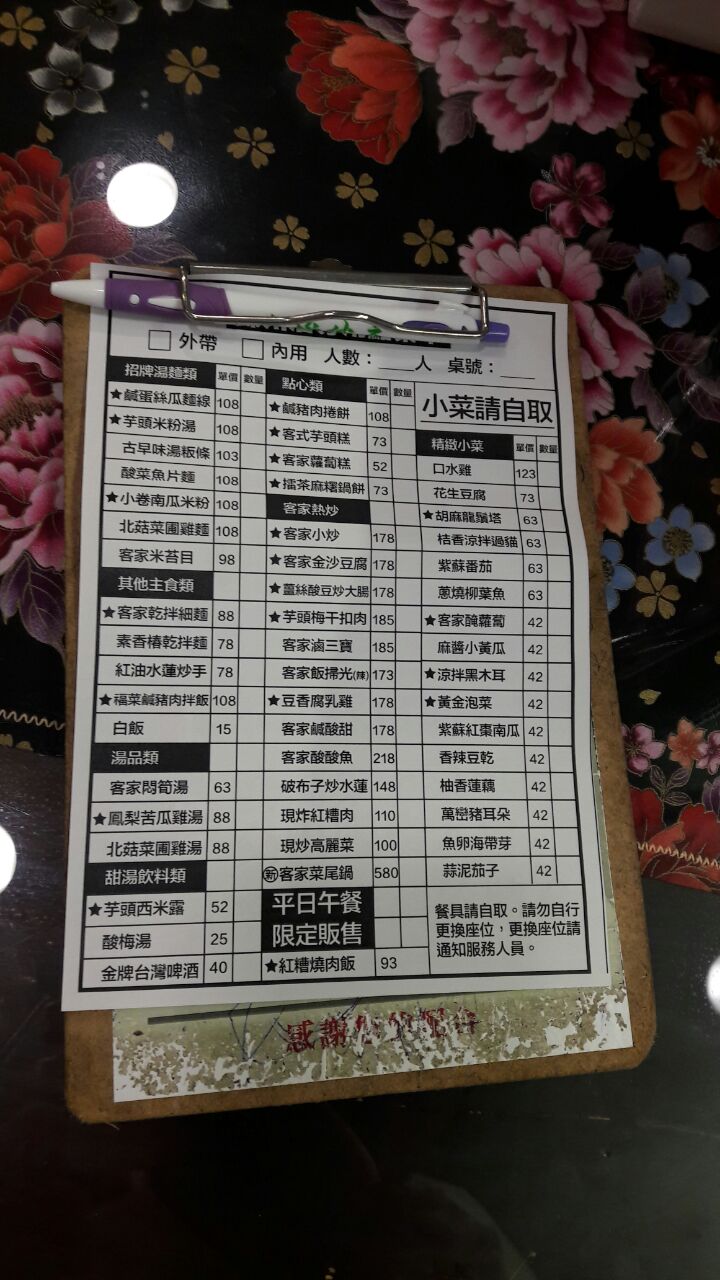 □ 外帶 □ 內用 人數：___人 桌號：___
招牌湯麵類 單價 數量
★鹹蛋絲瓜麵線 108
★芋頭米粉湯 108
古早味湯粄條 103
酸菜魚片麵 108
★小卷南瓜米粉 108
北菇菜圃雞麵 108
客家米苔目 98
其他主食類
★客家乾拌細麵 88
素香椿乾拌麵 78
紅油水蓮炒手 78
★福菜鹹豬肉拌飯 108
白飯 15
湯品類
客家悶筍湯 63
★鳳梨苦瓜雞湯 88
北菇菜圃雞湯 88
甜湯飲料類
★芋頭西米露 52
酸梅湯 25
金牌台灣啤酒 40
點心類 單價 數量
★鹹豬肉捲餅 108
★客式芋頭糕 73
★客家蘿蔔糕 52
★擂茶麻糬鍋餅 73
客家熱炒
★客家小炒 178
★客家金沙豆腐 178
★薑絲酸豆炒大腸 178
★芋頭梅干扣肉 185
客家滷三寶 185
客家飯掃光(辣) 173
★豆香腐乳雞 178
客家鹹酸甜 178
客家酸酸魚 218
破布子炒水蓮 148
現炸紅糟肉 110
現炒高麗菜 100
新客家菜尾鍋 580
平日午餐
限定販售
★紅糟燒肉飯 93
小菜請自取
精緻小菜 單價 數量
口水雞 123
花生豆腐 73
★胡麻龍鬚塔 63
桔香涼拌過貓 63
紫蘇番茄 63
蔥燒柳葉魚 63
★客家醃蘿蔔 42
麻醬小黃瓜 42
★涼拌黑木耳 42
★黃金泡菜 42
紫蘇紅棗南瓜 42
香辣豆乾 42
柚香蓮藕 42
萬巒豬耳朵 42
魚卵海帶芽 42
蒜泥茄子 42
餐具請自取。請勿自行
更換座位，更換座位請
通知服務人員。
感謝